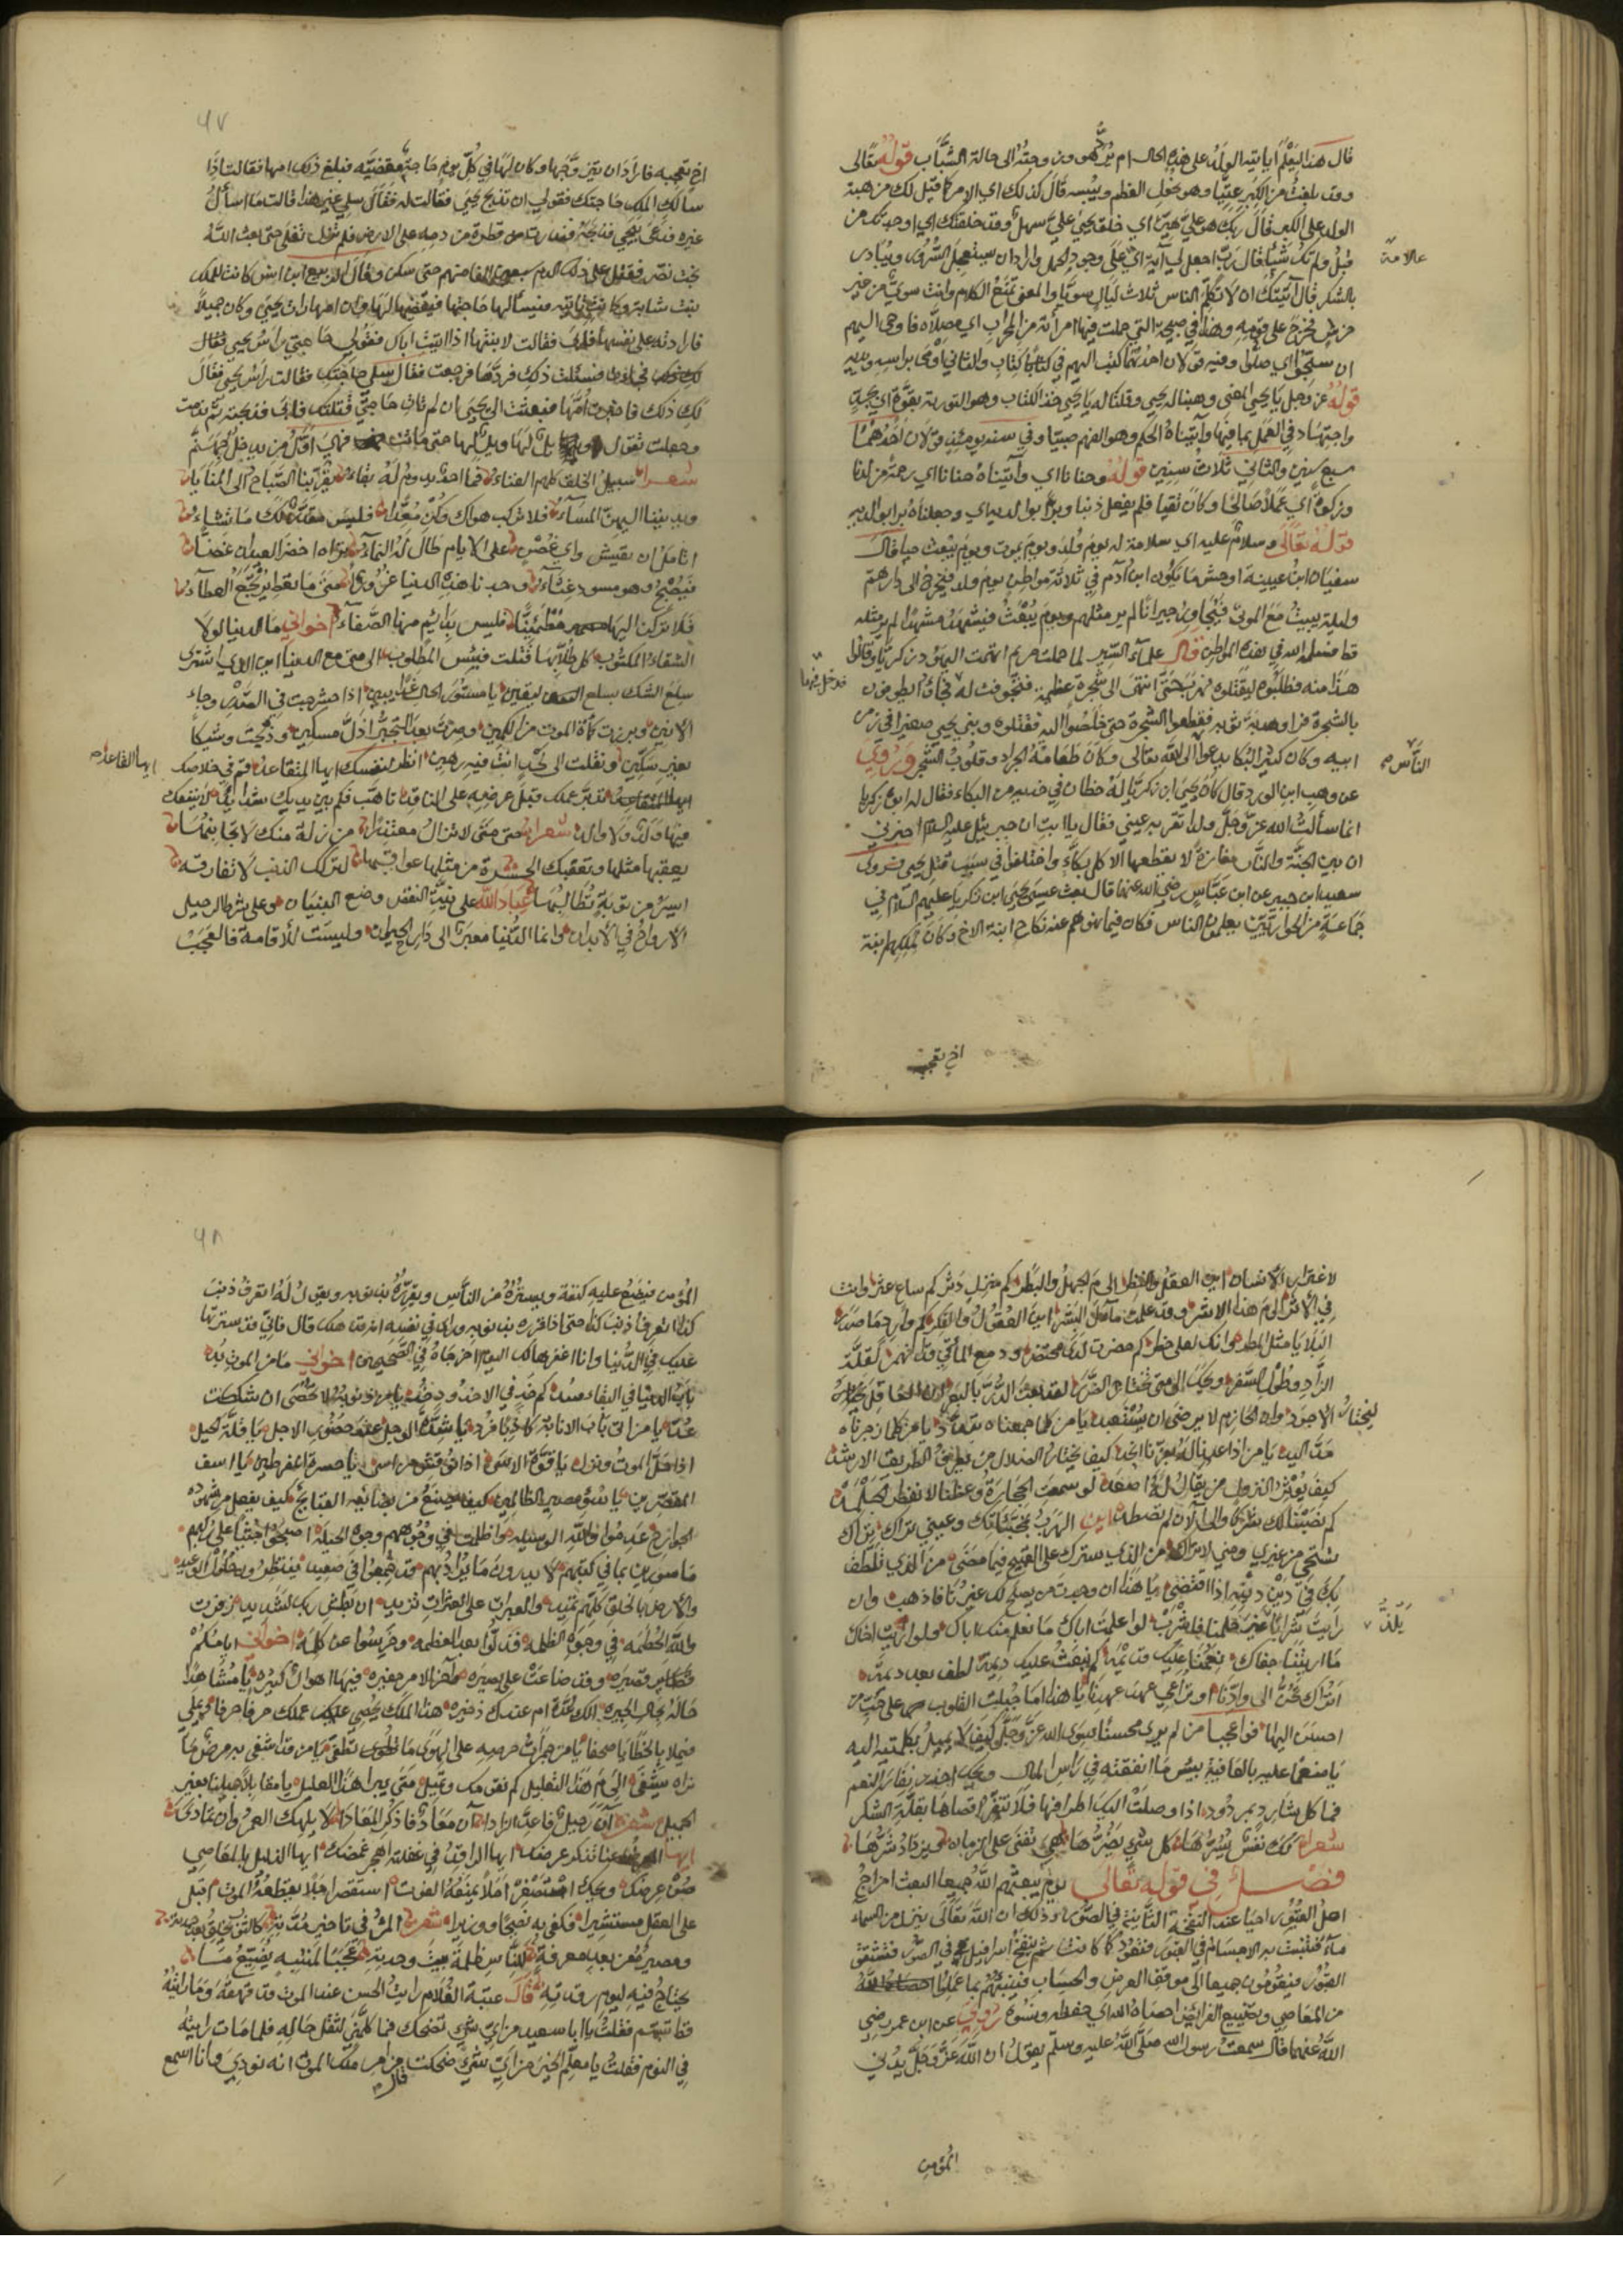 قال هذا ليعلم ايأتيه الولد على هذه الحال ام يرد هو وزوجته الى حالة الشباب قوله تعالى
وقد بلغت من الكبر عتيا وهو نحول العظم ويبسه قال كذلك اي الامر كما قيل لك من هبة
الولد على الكبر قال ربك هو علي هين اي خلق يحيى علي سهل وقد خلقتك اي اوجدتك من
قبل ولم تك شيئا قال رب اجعل لي آية اي على وجود الحمل واراد ان يستعجل السرور ويبادر
علامة
بالشكر قال آيتك ان لا تكلم الناس ثلاث ليال سويا والمعنى تمنع الكلام وانت سوي من غير
خرس فخرج على قومه وهذا في صبيحة التي حملت فيها امرأته من المحراب اي مصلاه فاوحى اليهم
ان سبحوا اي صلوا وفيه قولان احدهما كتب اليهم في كتاب والثاني اومى براسه ويديه
قوله عز وجل يا يحيى المعنى وهبنا له يحيى وقلنا له يا يحيى خذ الكتاب وهو التورية بقوة اي بجد
واجتهاد في العمل بما فيها وآتيناه الحكم وهو الفهم صبيا وفي سنه يومئذ قولان احدهما
سبع سنين والثاني ثلاث سنين قوله وحنانا اي وآتيناه حنانا اي رحمة من لدنا
وزكوة اي عملا صالحا وكان تقيا فلم يفعل ذنبا وبرا بوالديه اي وجعلناه برا بوالديه
قوله تعالى وسلام عليه اي سلامة له يوم ولد ويوم يموت ويوم يبعث حيا قال
سفيان ابن عيينة اوحش ما يكون ابن آدم في ثلاثة مواطن يوم ولد فيخرج الى دار هم
وليلة يبيت مع الموتى فيجاور جيرانا لم ير مثلهم ويوم يبعث فيشهد مشهدا لم ير مثله
قط فسلمه الله في هذه المواطن قال علماء السير لما حملت مريم اتهمت اليهود زكريا وقالوا
هذا منه فطلبوه ليقتلوه فهرب حتى انتهى الى شجرة عظيمة فتجوفت له فجاؤا يطوفون
فدخل فيها
بالشجرة فراوا هدبة ثوبه فقطعوا الشجرة حتى خلصوا اليه فقتلوه وبني يحيى صغيرا في زمن
ابيه وكان كثير البكا يدعوا الى الله تعالى وكان طعامه الجراد وقلوب الشجر وروي
الناس
عن وهب ابن الورد قال كان يحيى ابن زكريا له خطان في خديه من البكاء فقال له ابوه زكريا
انما سألت الله عز وجل ولدا تقر به عيني فقال يا ابت ان جبريل عليه السلام اخبرني
ان بين الجنة والنار مفازة لا يقطعها الا كل بكاء واختلفوا في سبب قتل يحيى فروى
سعيد ابن جبير عن ابن عباس رضي الله عنهما قال بعث عيسى يحيى ابن زكريا عليهم السلام في
جماعة من الحواريين يعلمون الناس فكان فيما نهوهم عنه نكاح ابنة الاخ وكان لملكهم ابنة
اخ تعجبه
٦٧
اخ تعجبه فاراد ان يتزوجها وكان لها في كل يوم حاجة يقضيها فبلغ ذلك امها فقالت اذا
سألك الملك حاجتك فقولي ان تذبح يحيى فقالت له فقال سلي غير هذا قالت ما اسأل
غيره فدعى بيحيى فذبحه فندرت قطرة من دمه على الارض فلم تزل تغلي حتى بعث الله
بخت نصر فقتل على ذلك الدم سبعين الفا منهم حتى سكن وقال الربيع ابن انس كانت للملك
بنت شابة وكانت تاتيه فيسألها حاجتها فيقضيها لها وان امها رات يحيى وكان جميلا
فارادته على نفسها فابى فقالت لابنتها اذا اتيت اباك فقولي حاجتي راس يحيى فقال
فسئلت ذلك فردها فرجعت فقال سلي حاجتك فقالت راس يحيى فقال
لك ذلك فاخبرت امها فبعثت الى يحيى ان لم تات حاجتي قتلتك فابى فذبحته ثم ندمت
وجعلت تقول ويل لها ويل لها حتى ماتت فهي اول من يدخل جهنم
شعر سبيل الخلق كلهم الفناء فما احد يدوم له بقاء يقربنا الصباح الى المنايا
ويدنينا اليهن المساء فلا تركب هواك وكن معدا فليس مقدرا لك ما تشاء
اتأمل ان تعيش واي غصن على الايام طال له النماء تراه اخضر العيدان غضا
فيصبح وهو مسود غثاء وجدنا هذه الدنيا غرورا متى ما تعط يرتجع العطاء
فلا تركن اليها مطمئنا فليس بدائم منها الصفاء اخواني ما الدنيا لولا
الشقاء المكتوب كل طلابها قتلت فبئس المطلوب الى متى مع الدنيا
سلع الشك بسلع اليقين يا مستور الحال غدا يبين اذا حشرجت في الصدر وجاء
الانين وبرزت كأة الموت من الكمين وصرت بعد التجبر اذل مسكين وذبحت وشيكا
بغير سكين ونقلت الى لحد انت فيه رهين انظر لنفسك ايها المتقاعد وقم في خلاصك
ايها القاعد
تدبر عملك قبل عرضه على الناقد تاهب فكم بين يديك شدائد لا ينفعك
فيها ولد ولا والد شعر حتى متى لا تزال معتذرا من زلة منك لا تجانبها
يعقبها مثلها وتعقبك الحسرة من مثلها عواقبها لتركك الذنب لا تفارقه
ايسر من توبة تطالبها عباد الله على نية النقض وضع البنيان وعلى شرط الرحيل
الارواح في الابدان وانما الدنيا معبر الى دار الحيوان وليست للأقامة فالعجب
لاغترار الانسان اين العقل والنظر الى م الجهل والبطر كم منزل دثر كم ساع عثر وانت
في الأثر الى م هذا الاشر وقد علمت مآل البشر اين العقول والفكر كم وارد ما صدر
البلايا مثل المطر وانك لعلى خطر كم حضرت لدى محتضر ودمع المآقي قد انهمر لقلة
الزاد وطول السفر ويحك الى متى تختار الضرر لقد بعت الدر بالبعر ان العاقل يختار
الاجود وان الحازم لا يرضى ان يستعبد يا من كلما جمعناه تبدد يا من كلما زجرناه
ليختار
مد اليد يا من اذا عد نال لغيرنا انجد كيف يختار الضلال من يعرف الطريق الارشد
كيف يؤثر النزول من يقال له اصعد لو سمعت الحجارة وعظنا لانفطر الجلمد
كم نصبنا لك شركا والى الآن لم تصطد اين الهرب بمحبتك وعيني تراك
تستحي من غيري ومني لا من الذي سترك على القبيح فيما مضى من الذي تلطف
بك في دين دينه اذا اقتضى يا هذا ان وجدت من يصلح لك غيرنا فاذهب وان
رايت شرابا غير حلمنا فاشرب لو اعلمت اباك ما نعلم منك اباك ولو رايت اخاك
يلذ
ما اريتنا جفاك نعمنا عليك قديمة كم بعثت عليك ديمة لطف بعد ديمة
اتراك تحن الى وادنا او تراعي عهد عهدنا يا هذا اما جبلت القلوب على حب من
احسن اليها فواعجبا من لم ير محسنا سوى الله عز وجل كيف لا يميل بكليته اليه
يا منعما عليه بالعافية بئس ما انفقته في راس المال ويحك احذر نفار النعم
فما كل شارد بمردود اذا وصلت اليك اطرافها فلا تنفر اقصاها بقلة الشكر
شعر لك نفس تسرها كل شيء يضرها فهي تفنى على الزمان ويزداد شرها
فصل في قوله تعالى يوم يبعثهم الله جميعا البعث اخراج
اهل القبور احيا عند النفخة الثانية في الصور وذلك ان الله تعالى ينزل من السماء
ماء فتنبت به الاجسام في القبور فتعود كما كانت ثم ينفخ اسرافيل في الصور فتنشق
القبور فيقومون جميعا الى موقف العرض والحساب فينبئهم بما عملوا احصاه الله
من المعاصي وتضييع الفرائض احصاه الله اي حفظه ونسوه روي عن ابن عمر رضي
الله عنهما قال سمعت رسول الله صلى الله عليه وسلم يقول ان الله عز وجل يدني
المؤمن
٦٨
المؤمن فيضع عليه كنفه ويستره من الناس ويقرره بذنوبه ويقول له اتعرف ذنب
كذا اتعرف ذنب كذا حتى اذا قرره بذنوبه وراى في نفسه انه قد هلك قال فاني قد سترتها
عليك في الدنيا وانا اغفرها لك اليوم اخرجاه في الصحيحين اخواني ما من الموت بد
باب الدنيا في البقاء سد كم خد في الاخدود خد يا من ذنوبه لا تحصى ان شككت
عد يا من اتى باب الانابة كاذبا فرد يا شدة الوجل عند حضور الاجل يا قلة الحيل
اذا حل الموت ونزل يا قوة الاسى اذا نوقش من اسا يا حسرة المفرطين يا اسف
المقصرين يا سوء مصير الظالمين كيف يصنع من بضائعه القبائح كيف يفعل من شهوده
الجوارح عدموا والله الوسيلة واظلمت في وجوههم وجوه الحيلة اصبحوا جثيا على ركبهم
ماسورين بما في كتبهم لا يدرون ما يراد بهم قد جمعوا في صعيد ينتظرون حلول الوعيد
والارض بالخلق كلهم تميد والعبرات على العثرات تزيد ان بطش ربك لشديد زفرت
والله الحطمة في وجوه الظلمة فذلوا بعد العظمة وخرسوا عن كلمة اخواني ايامكم
قصيرة وقد ضاعت على بصيرة وآخر الامر حفيرة فيها اهوال كثيرة يا مشاهدا
حاله بحال الحيرة الك عدة ام عندك ذخيرة هذا الملك يحصي عليك عملك حرفا حرفا ويملي
فيملا بالخطايا صحفا يا من جمرات حرصه على الهوى ما تطفى يا من قد اشفى به مرض ما
نراه يشفى الى م هذا التعليل كم تقومك وتميل متى يبرا هذا العليل يا مقابلا جميلنا بغير
الجميل شعر آن رحيل فاعد الزادا آن معاد فاذكر المعادا لا يلهك العمر وان تمادى
ايها المعرض عنا تذكر عرضك ايها الراقد في غفلته اهجر غمضك ايها الذليل بالمعاصي
صن عرضك ويحك استصغر املا يمنعه الفوت استقصر اجلا يقطعه الموت اقبل
على العقل مستشيرا فكفى به نصيحا ووزيرا شعر المرء في تاخير مدته كالثوب يبلى بعد جدته
ومصيره من بعد معرفة للناس ظلمة بيت وحدته عجبا لمنتبه يضيع ما
يحتاج فيه ليوم رقدته قال عتبة الغلام رايت الحسن عند الموت وقد قهقه وما رايته
قط تبسم فقلت يا ابا سعيد من اي شيء تضحك فما كلمني لثقل حاله فلما مات رايته
في النوم فقلت يا معلم الخير من اي شيء ضحكت قال من امر ملك الموت انه نودي وانا اسمع